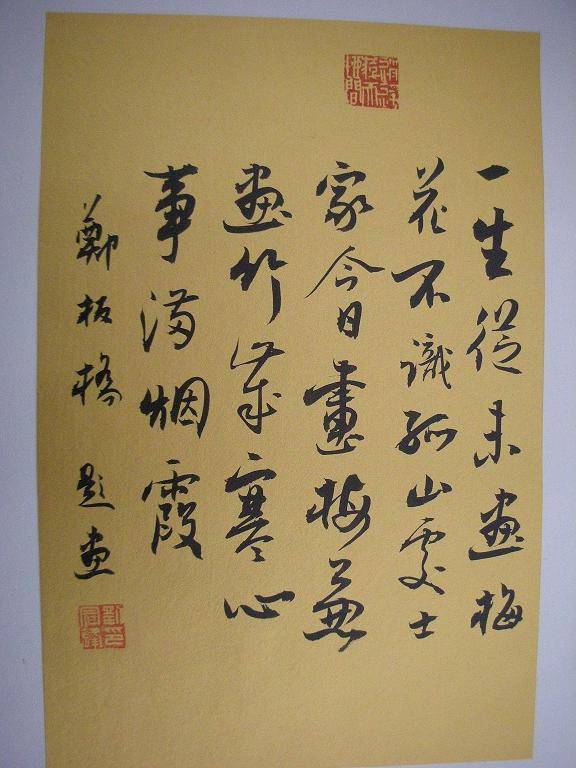 一生從未畫梅
花不識孤山處士
家今日畫梅兼
畫竹歲寒心
事滿烟霞
鄭板橋 題畫